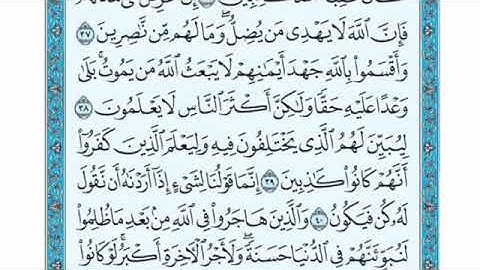 فَإِنَّ ٱللَّهَ لَا يَهْدِى مَن يُضِلُّ ۖ وَمَا لَهُم مِّن نَّٰصِرِينَ ٣٧
وَأَقْسَمُوا۟ بِٱللَّهِ جَهْدَ أَيْمَٰنِهِمْ لَا يَبْعَثُ ٱللَّهُ مَن يَمُوتُ ۚ بَلَىٰ
وَعْدًا عَلَيْهِ حَقًّا وَلَٰكِنَّ أَكْثَرَ ٱلنَّاسِ لَا يَعْلَمُونَ ٣٨
لِيُبَيِّنَ لَهُمُ ٱلَّذِى يَخْتَلِفُونَ فِيهِ وَلِيَعْلَمَ ٱلَّذِينَ كَفَرُوٓا۟
أَنَّهُمْ كَانُوا۟ كَٰذِبِينَ ٣٩ إِنَّمَا قَوْلُنَا لِشَىْءٍ إِذَآ أَرَدْنَٰهُ أَن نَّقُولَ
لَهُۥ كُن فَيَكُونُ ٤٠ وَٱلَّذِينَ هَاجَرُوا۟ فِى ٱللَّهِ مِنۢ بَعْدِ مَا ظُلِمُوا۟
لَنُبَوِّئَنَّهُمْ فِى ٱلدُّنْيَا حَسَنَةً ۖ وَلَأَجْرُ ٱلْءَاخِرَةِ أَكْبَرُ ۚ لَوْ كَانُوا۟